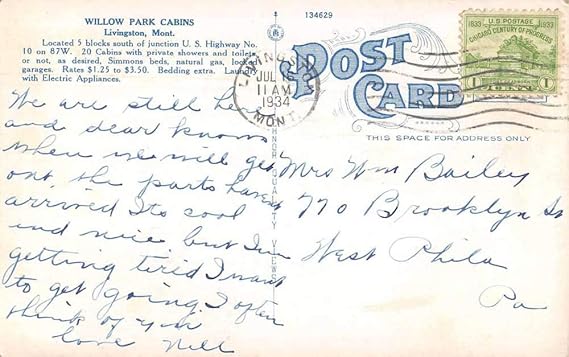 WILLOW PARK CABINS
Livingston, Mont.
Located 5 blocks south of junction U. S. Highway No.
10 on 87W. 20 Cabins with private showers and toilets
or not, as desired, Simmons beds, natural gas,
garages. Rates $1.25 to $3.50. Bedding extra.
with Electric Appliances.
134629
POST
CARD
THIS SPACE FOR ADDRESS ONLY
LIVINGSTON
JUL 16
11 AM
1934
MONT.
U.S. POSTAGE
1833 1933
CHICAGO CENTURY OF PROGRESS
1 1
QUALITY VIEWS
We are still he
and dear knows
when we will get
out the parts havent
arrived Its cool
and nice but Im
getting tird I want
to get going I often
think of you
love Nell
Mrs Wm Bailey
770 Brooklyn St
West Phila
Pa